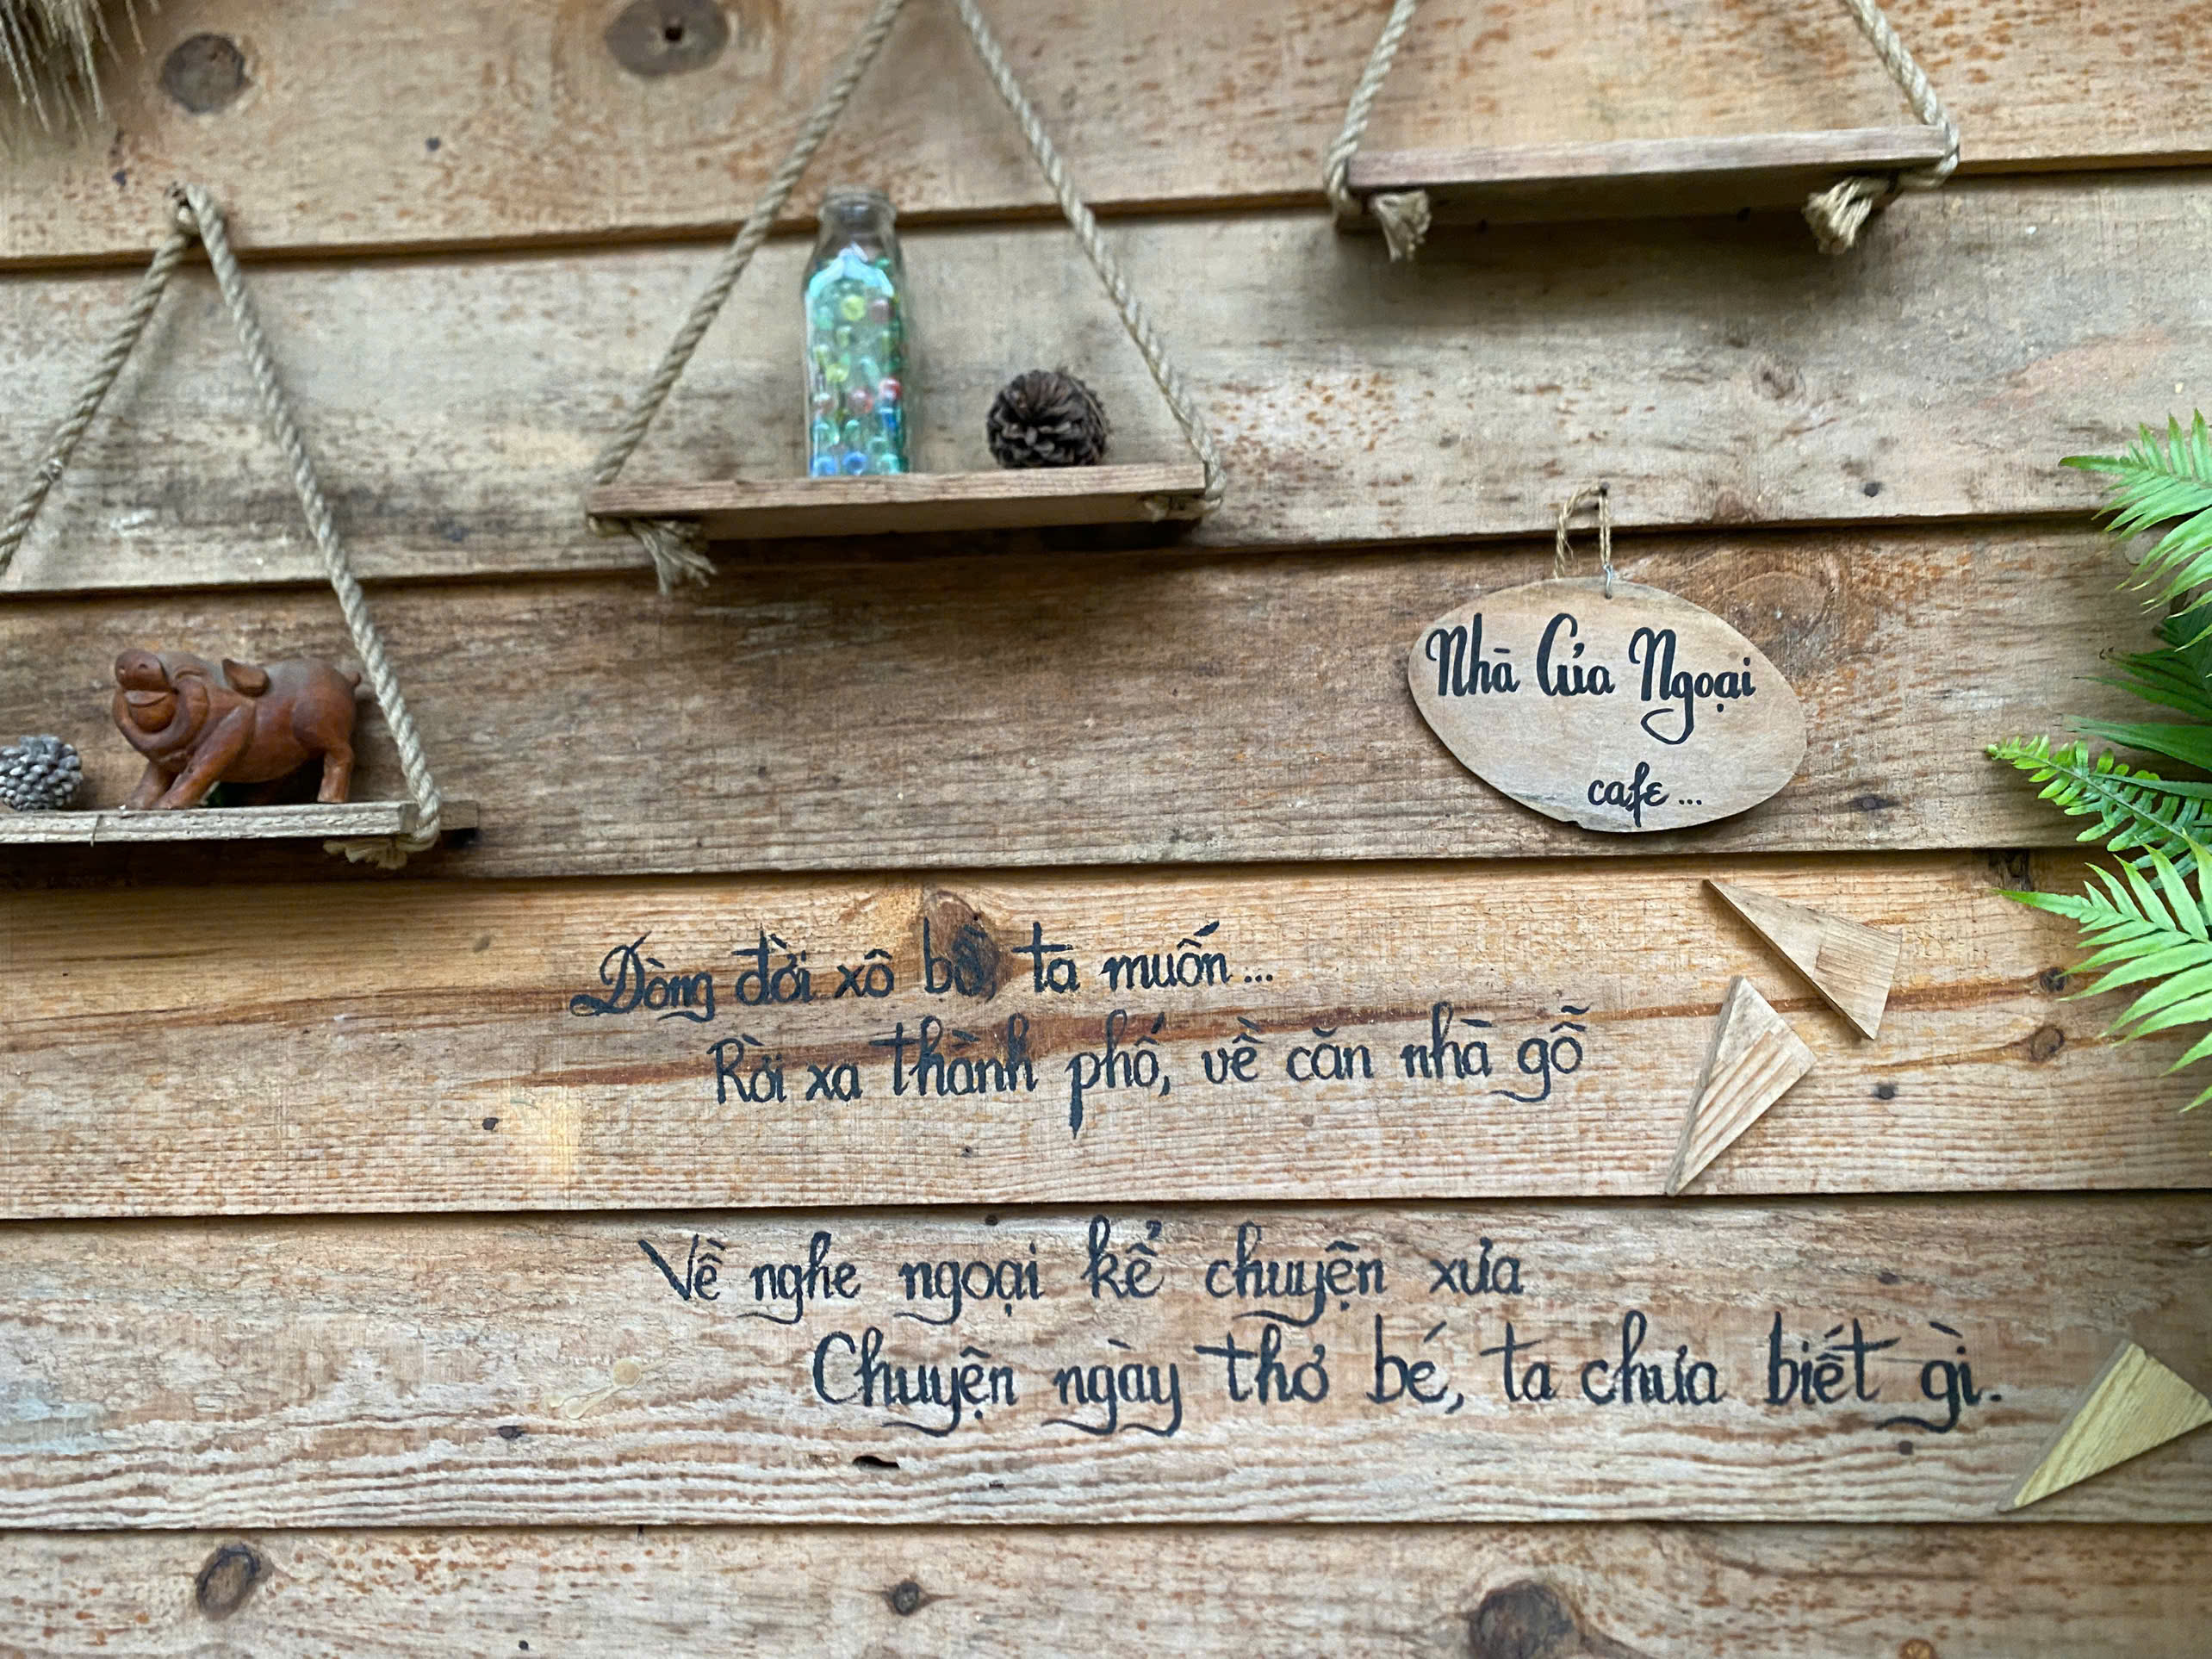 Nhà Của Ngoại
cafe ...
Dòng đời xô bồ, ta muốn...
Rời xa thành phố, về căn nhà gỗ
Về nghe ngoại kể chuyện xưa
Chuyện ngày thơ bé, ta chưa biết gì.